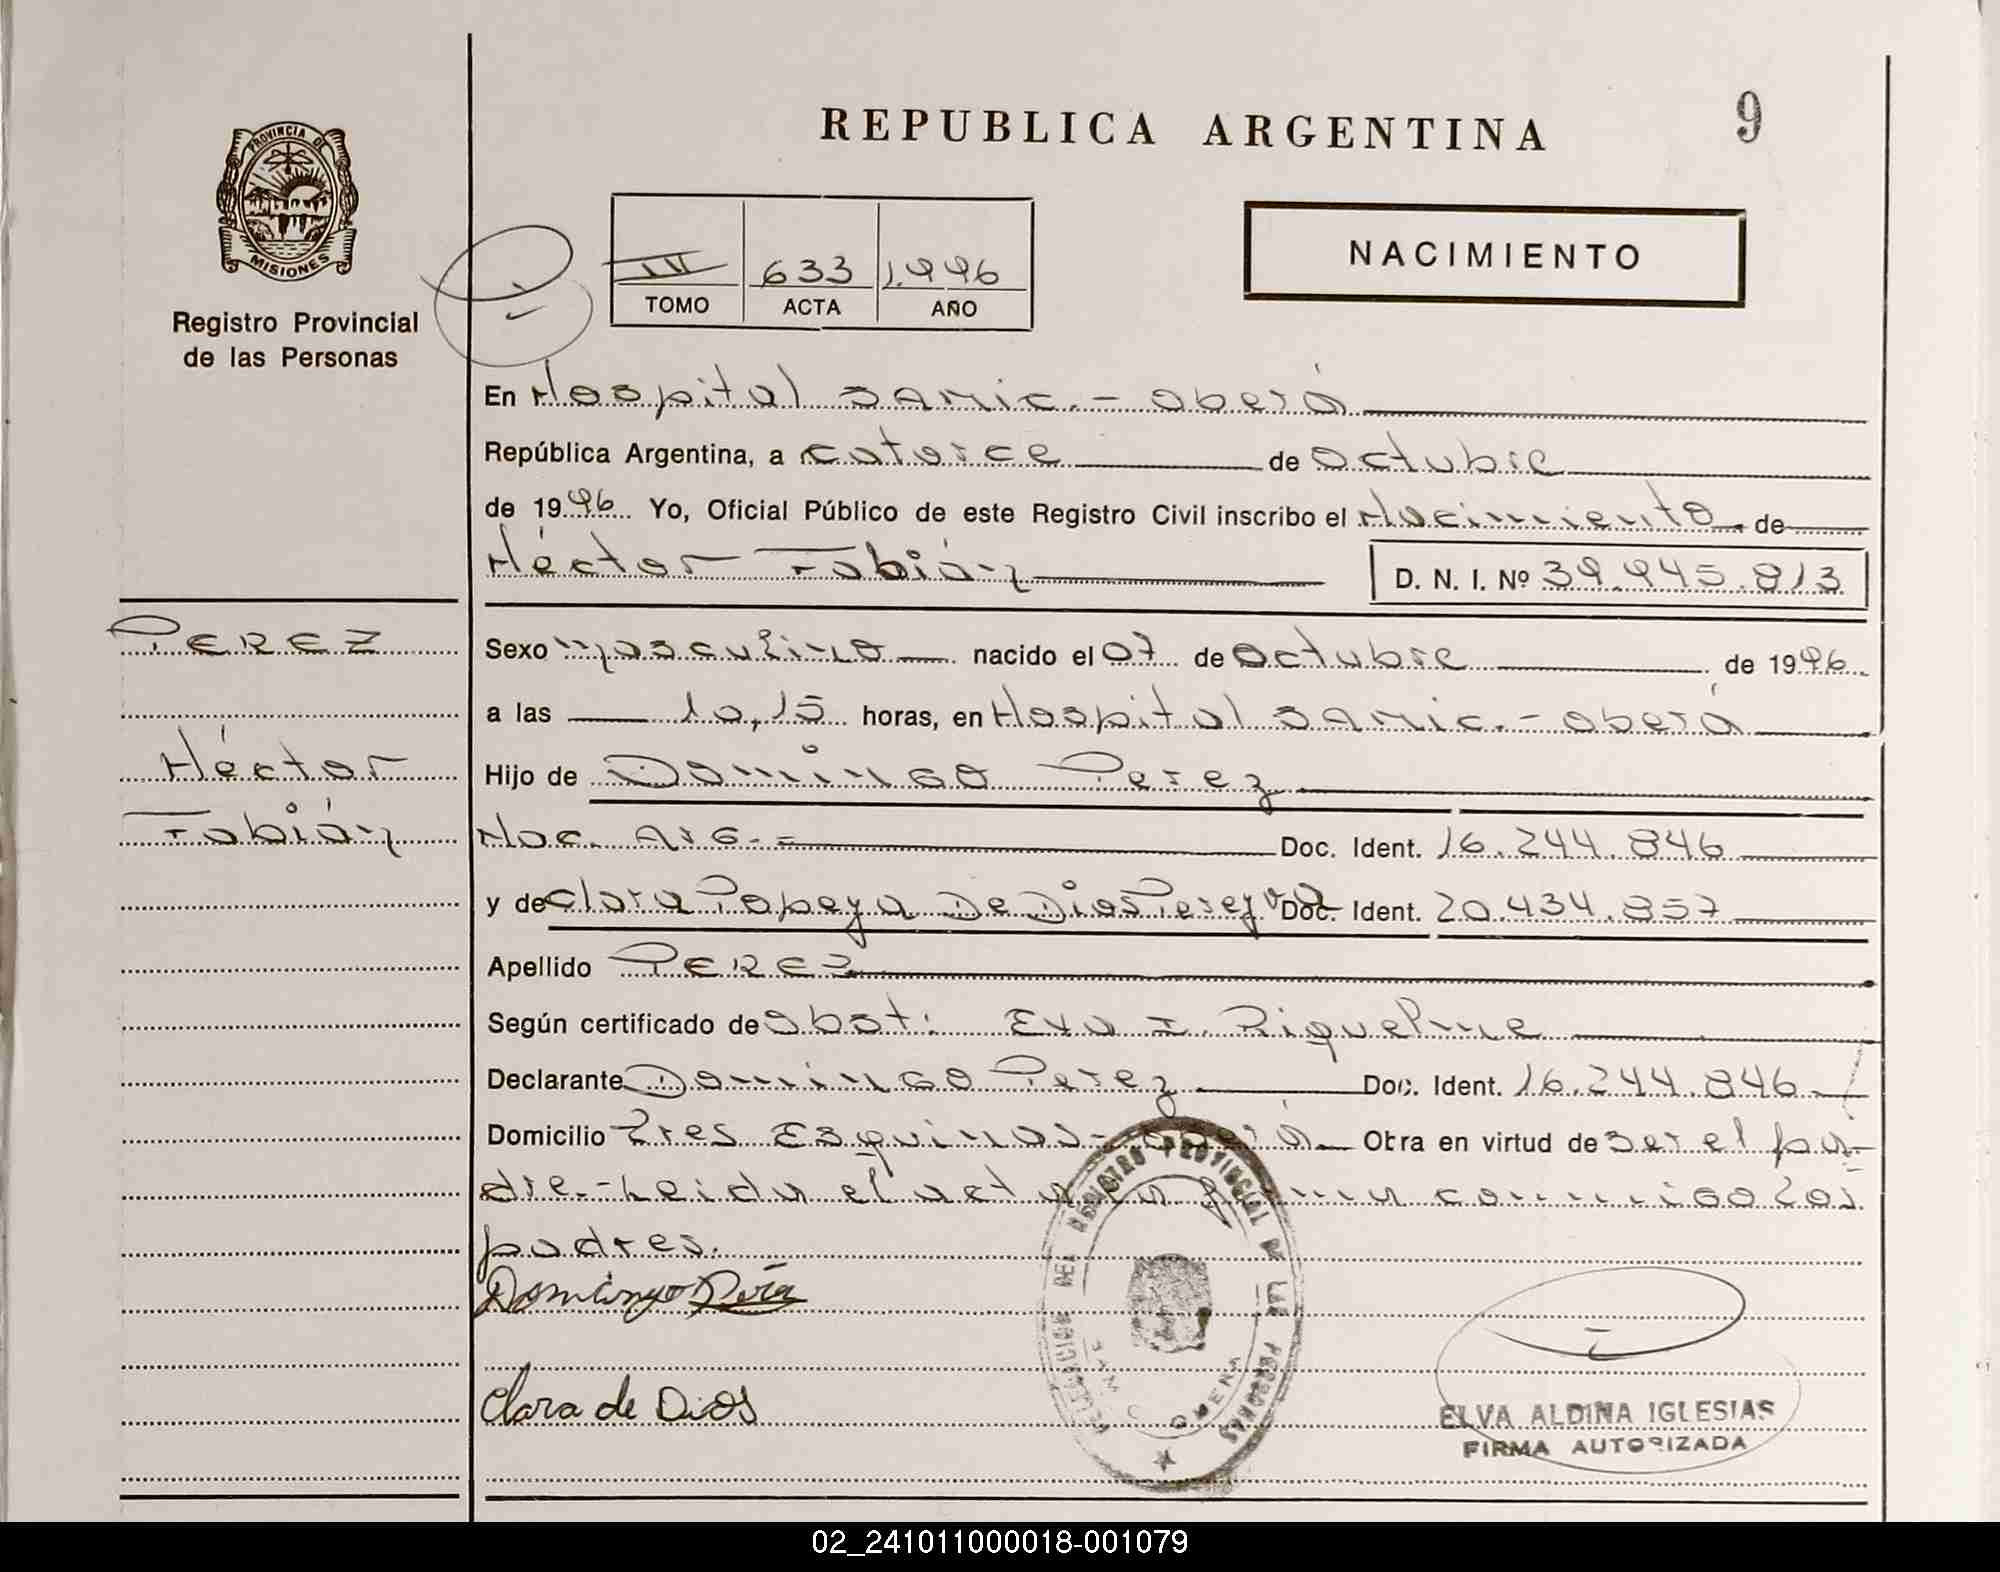 REPUBLICA ARGENTINA
9
PROVINCIA DE
MISIONES
Registro Provincial
de las Personas
IV 633 1.996
TOMO ACTA AÑO
NACIMIENTO
En Hospital SAMIC.- Oberá
República Argentina, a catorce de octubre
de 1996 Yo, Oficial Público de este Registro Civil inscribo el Nacimiento de
Héctor Fabián D. N. I. Nº 39.945.813
PEREZ
Héctor
Fabián
Sexo masculino nacido el 07 de octubre de 1996
a las 10,15 horas, en Hospital SAMIC.- Oberá
Hijo de Domingo Perez
Nac. Arg.= Doc. Ident. 16.244.846
y de Clara Popeya De Dios Perez Doc. Ident. 20.434.857
Apellido PEREZ
Según certificado de Obst: Eva I. Riquelme
Declarante Domingo Perez Doc. Ident. 16.244.846
Domicilio Tres Esquinas- Oberá Obra en virtud de ser el pa-
dre.- Leida el acta la firman conmigo los
padres.
Domingo
Clara de Dios
DELEGACION DEL REGISTRO PROVINCIAL DE LAS PERSONAS
OBERA
ELVA ALDINA IGLESIAS
FIRMA AUTORIZADA
02_241011000018-001079